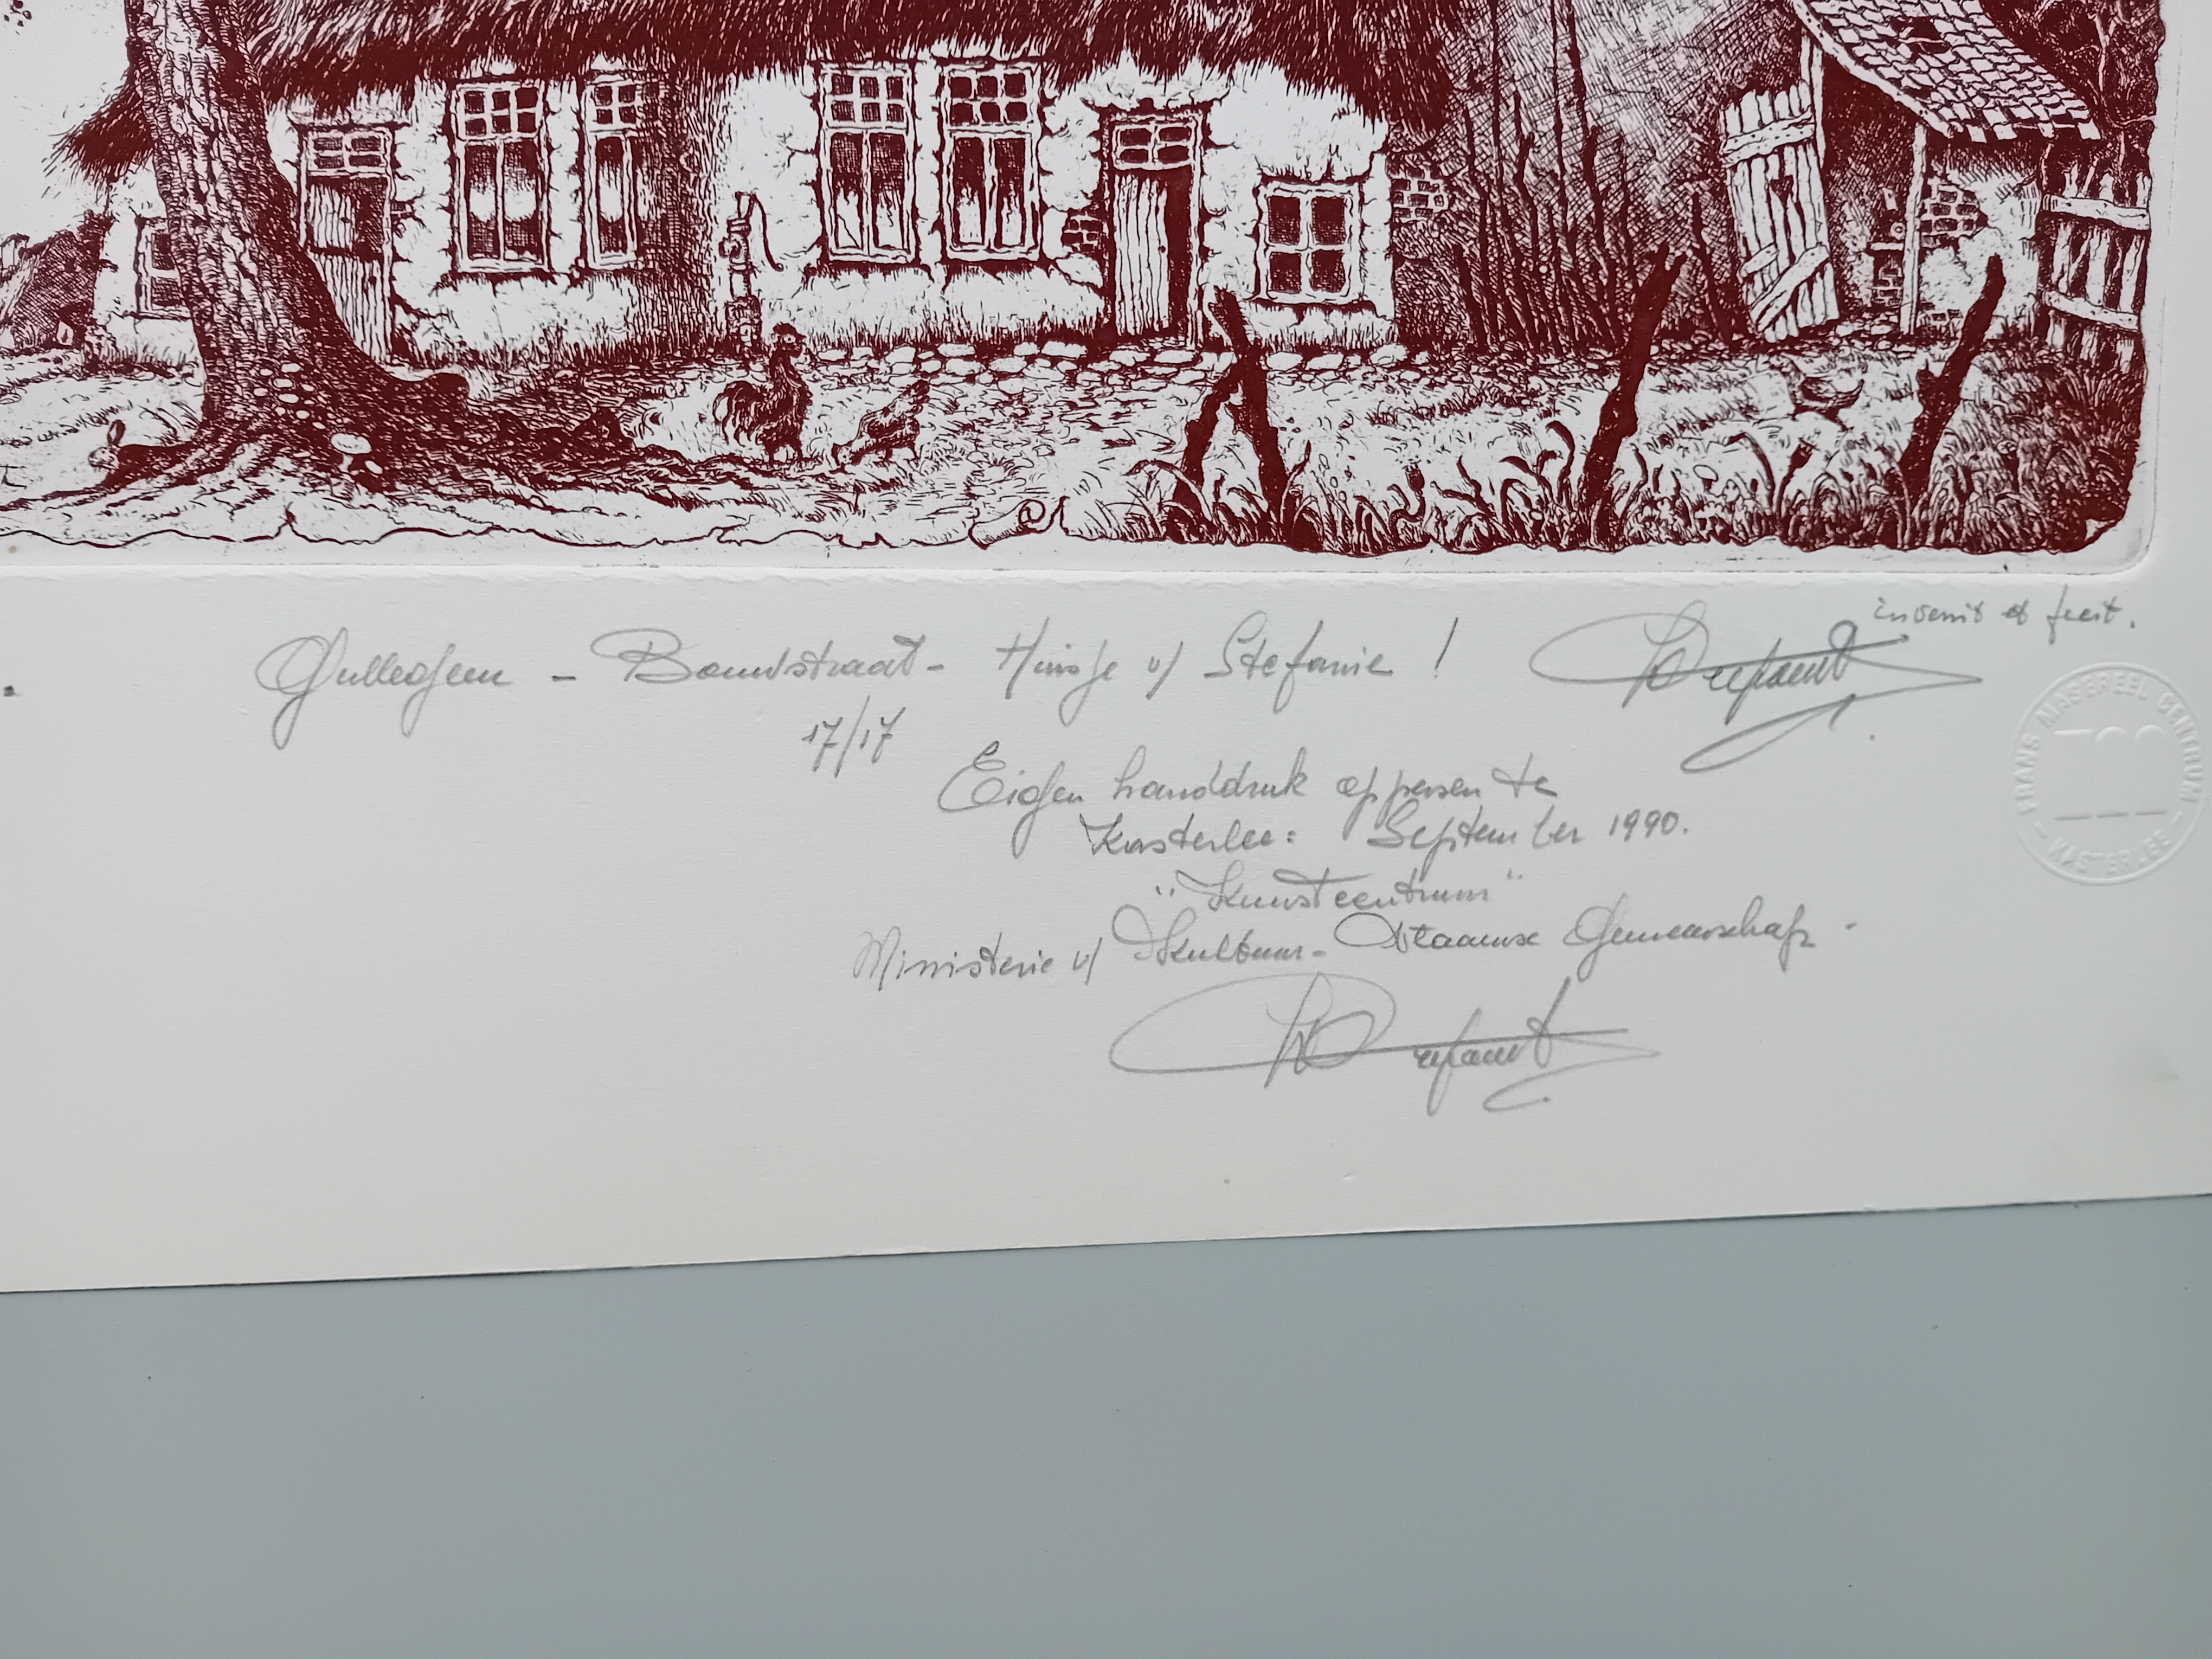 Gullegem - Bouwstraat - Huisje v/ Stefanie !
invenit et fecit.
17/17
Eigen handdruk op persen te
Kasterlee: September 1990.
"Kunstcentrum"
Ministerie v/ Kultuur - Vlaamse Gemeenschap -
FRANS MASEREEL CENTRUM
- KASTERLEE -